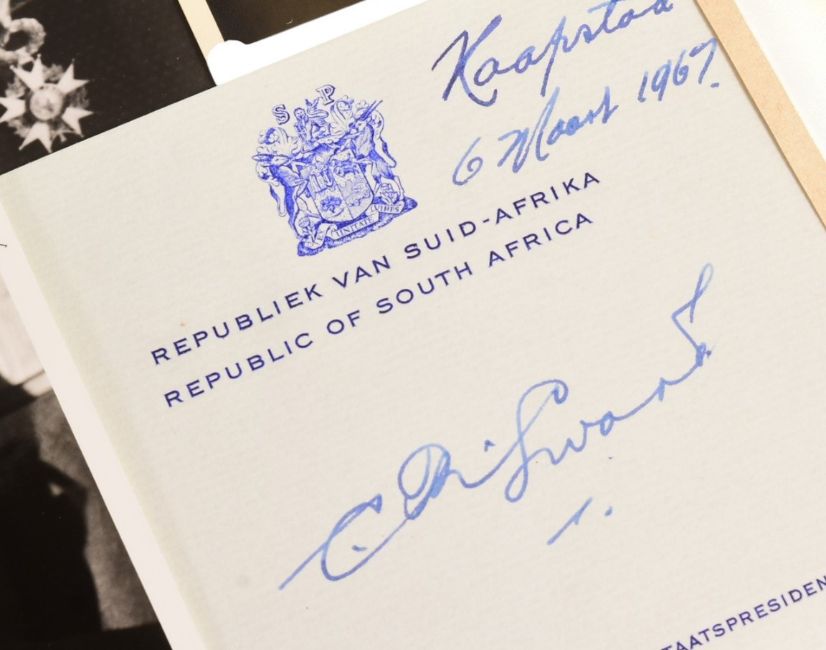 Kaapstad
6 Maart 1967.
S P
REPUBLIEK VAN SUID-AFRIKA
REPUBLIC OF SOUTH AFRICA
C. R. Swart
TAATSPRESIDEN